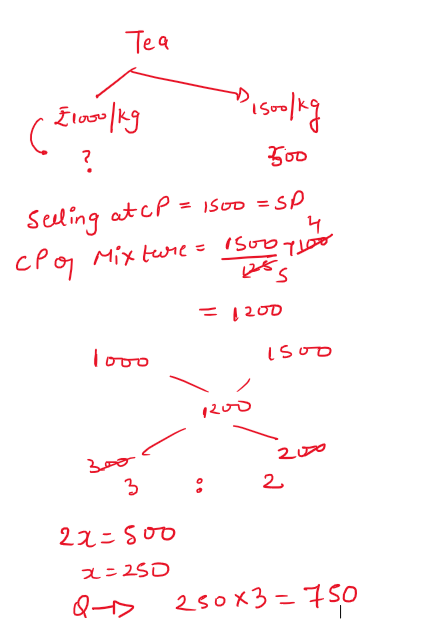 Tea
₹1000/kg 1500/kg
? 500
Selling at CP = 1500 = SP
CP of Mixture = 1500 × 100 4
125 5
= 1200
1000 1500
1200
300 200
3 : 2
2x = 500
x = 250
Q → 250 × 3 = 750